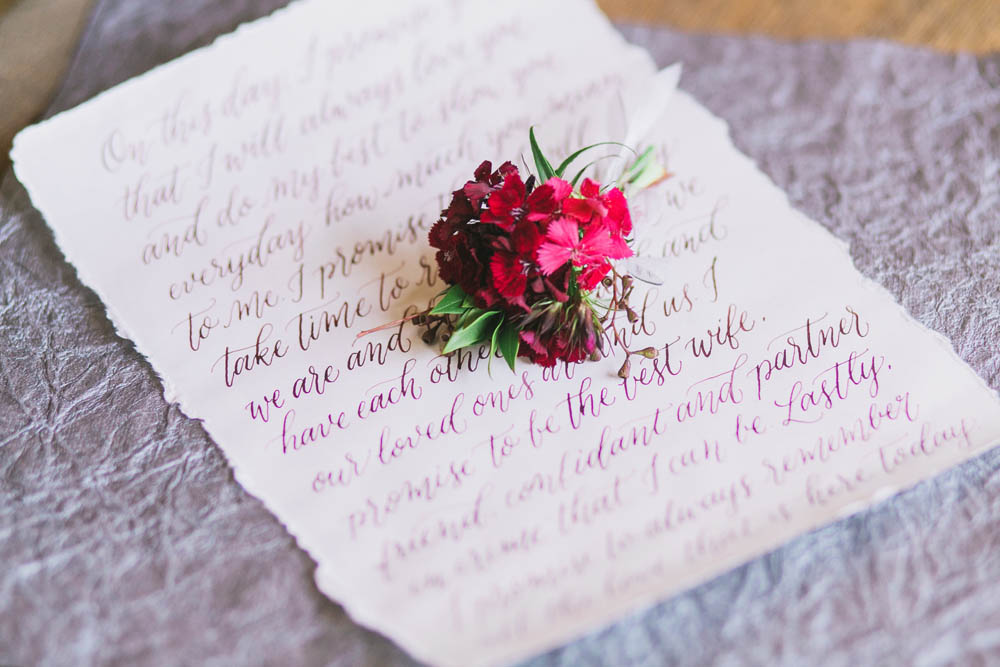 On this day, I promise
that I will always love you
and do my best to show you
everyday how much you mean
to me. I promise we
take time to and
we are and and us. I
have each other
our loved ones
promise to be the best wife,
friend, confidant and partner
in crime that I can be. Lastly,
I promise to always remember
all the love that is here today